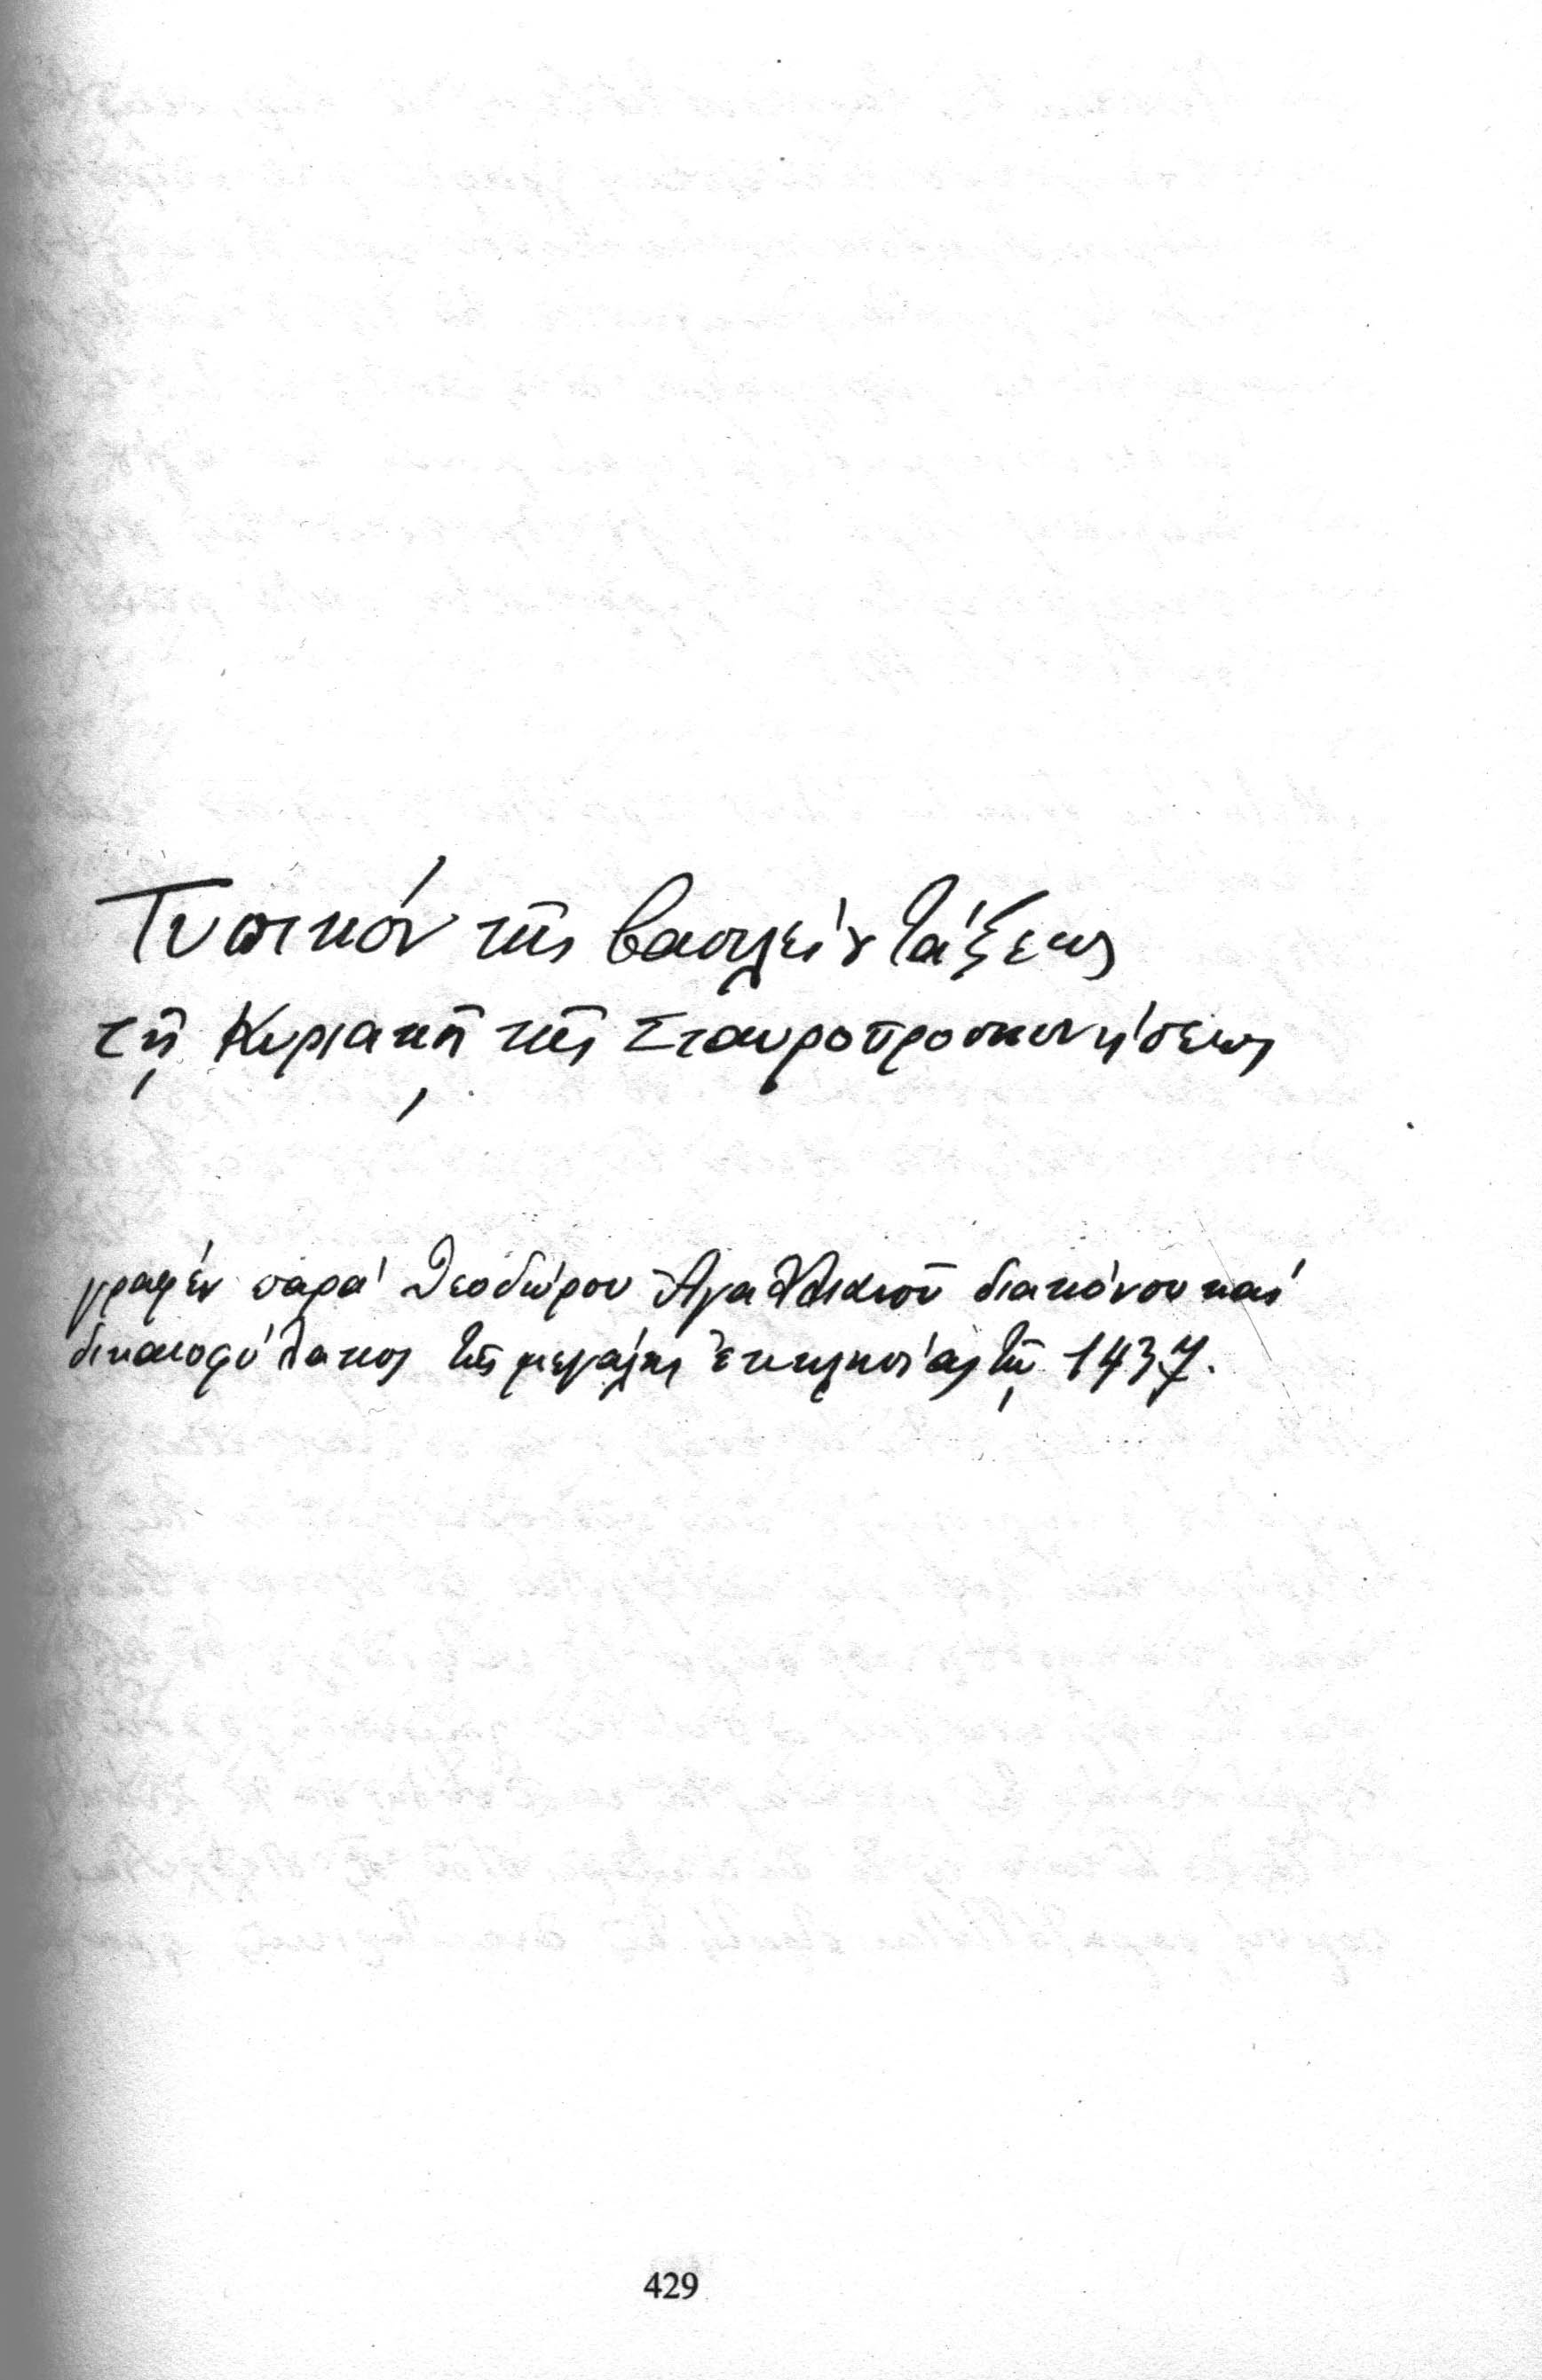 Τυπικόν τῆς βασιλείου τάξεως
τῇ Κυριακῇ τῆς Σταυροπροσκυνήσεως
γραφέν παρά Θεοδώρου Ἀγαλλιανοῦ διακόνου καί
δικαιοφύλακος τῆς μεγάλης ἐκκλησίας τῷ 1437.
429